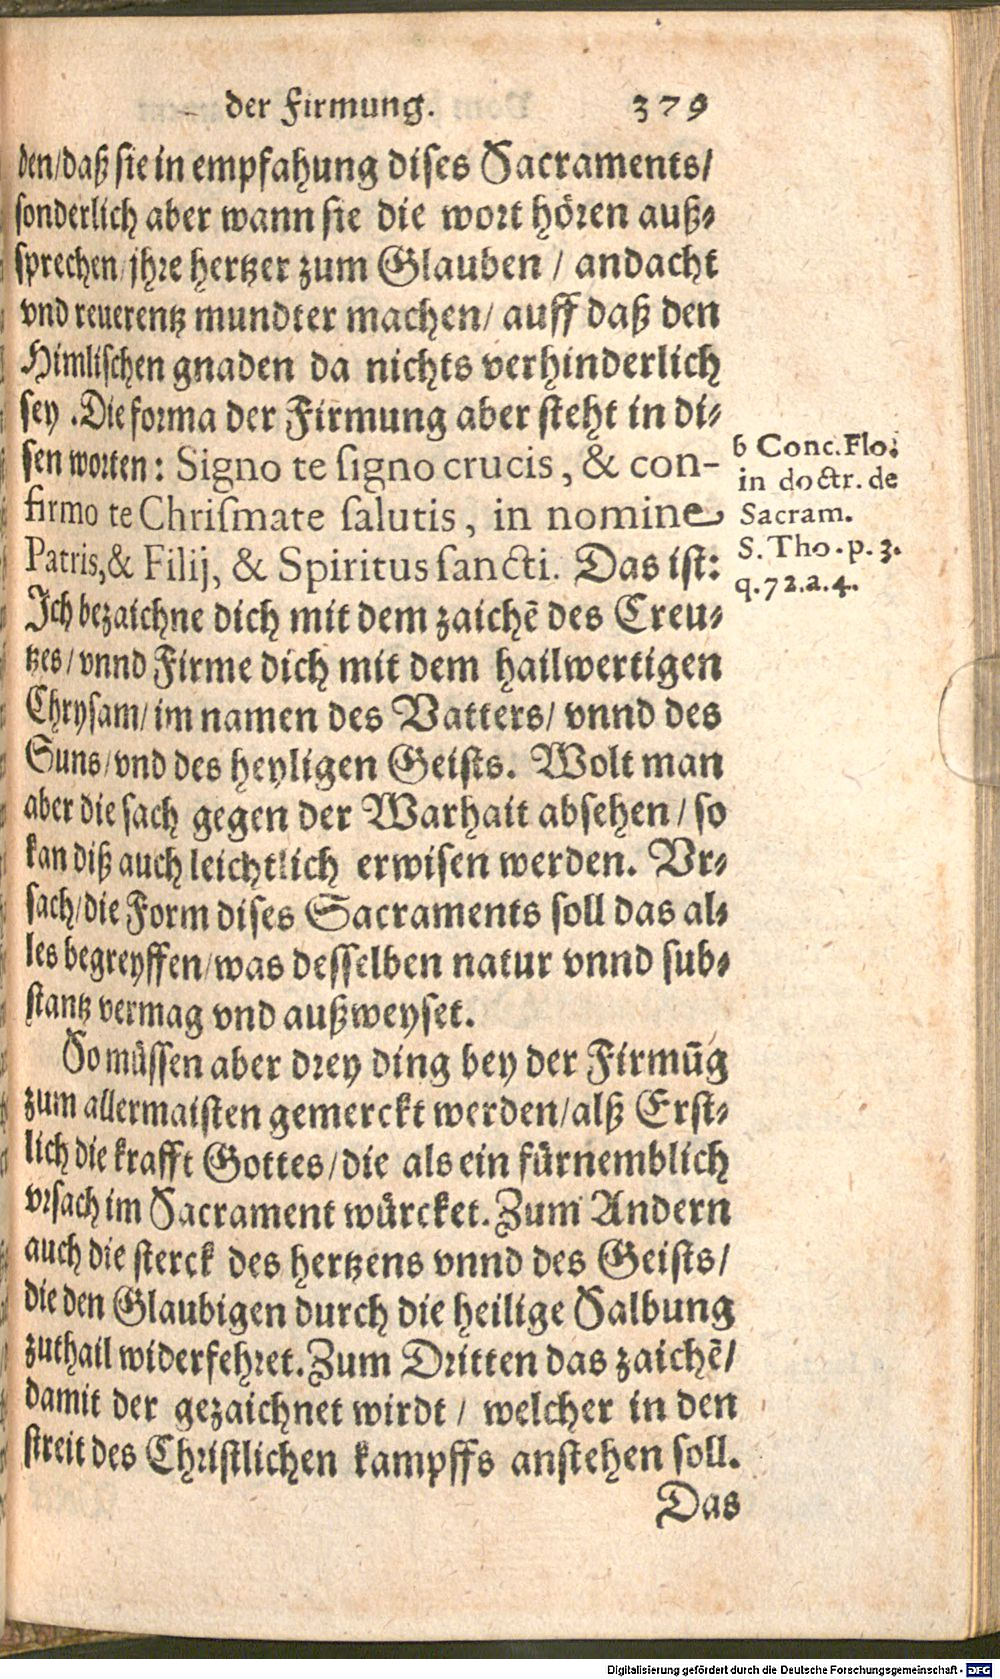 der Firmung. 379
den/daß sie in empfahung dises Sacraments/
sonderlich aber wann sie die wort hören auß⸗
sprechen/jhre hertzer zum Glauben / andacht
vnd reuerentz mundter machen/ auff daß den
Himlischen gnaden da nichts verhinderlich
sey .Die forma der Firmung aber steht in di⸗
sen worten: Signo te ſigno crucis, & con-
firmo te Chriſmate ſalutis, in nomine
Patris,& Filij, & Spiritus ſancti. Das ist:
Jch bezaichne dich mit dem zaichẽ des Creu⸗
tzes/vnnd Firme dich mit dem hailwertigen
Chrysam/im namen des Vatters/ vnnd des
Suns/vnd des heyligen Geists. Wolt man
aber die sach gegen der Warhait absehen/so
kan diß auch leichtlich erwisen werden. Vr⸗
sach/die Form dises Sacraments soll das al⸗
les begreyffen/was desselben natur vnnd sub⸗
stantz vermag vnd außweyset.
So müssen aber drey ding bey der Firmũg
zum allermaisten gemerckt werden/alß Erst⸗
lich die krafft Gottes/die als ein fürnemblich
vrsach im Sacrament würcket. Zum Andern
auch die sterck des hertzens vnnd des Geists/
die den Glaubigen durch die heilige Salbung
zuthail widerfehret. Zum Dritten das zaichẽ/
damit der gezaichnet wirdt / welcher in den
streit des Christlichen kampffs anstehen soll.
Das
b Conc. Flo.
in doctr. de
Sacram.
S. Tho. p. 3.
q. 72. a. 4.
Digitalisierung gefördert durch die Deutsche Forschungsgemeinschaft - DFG